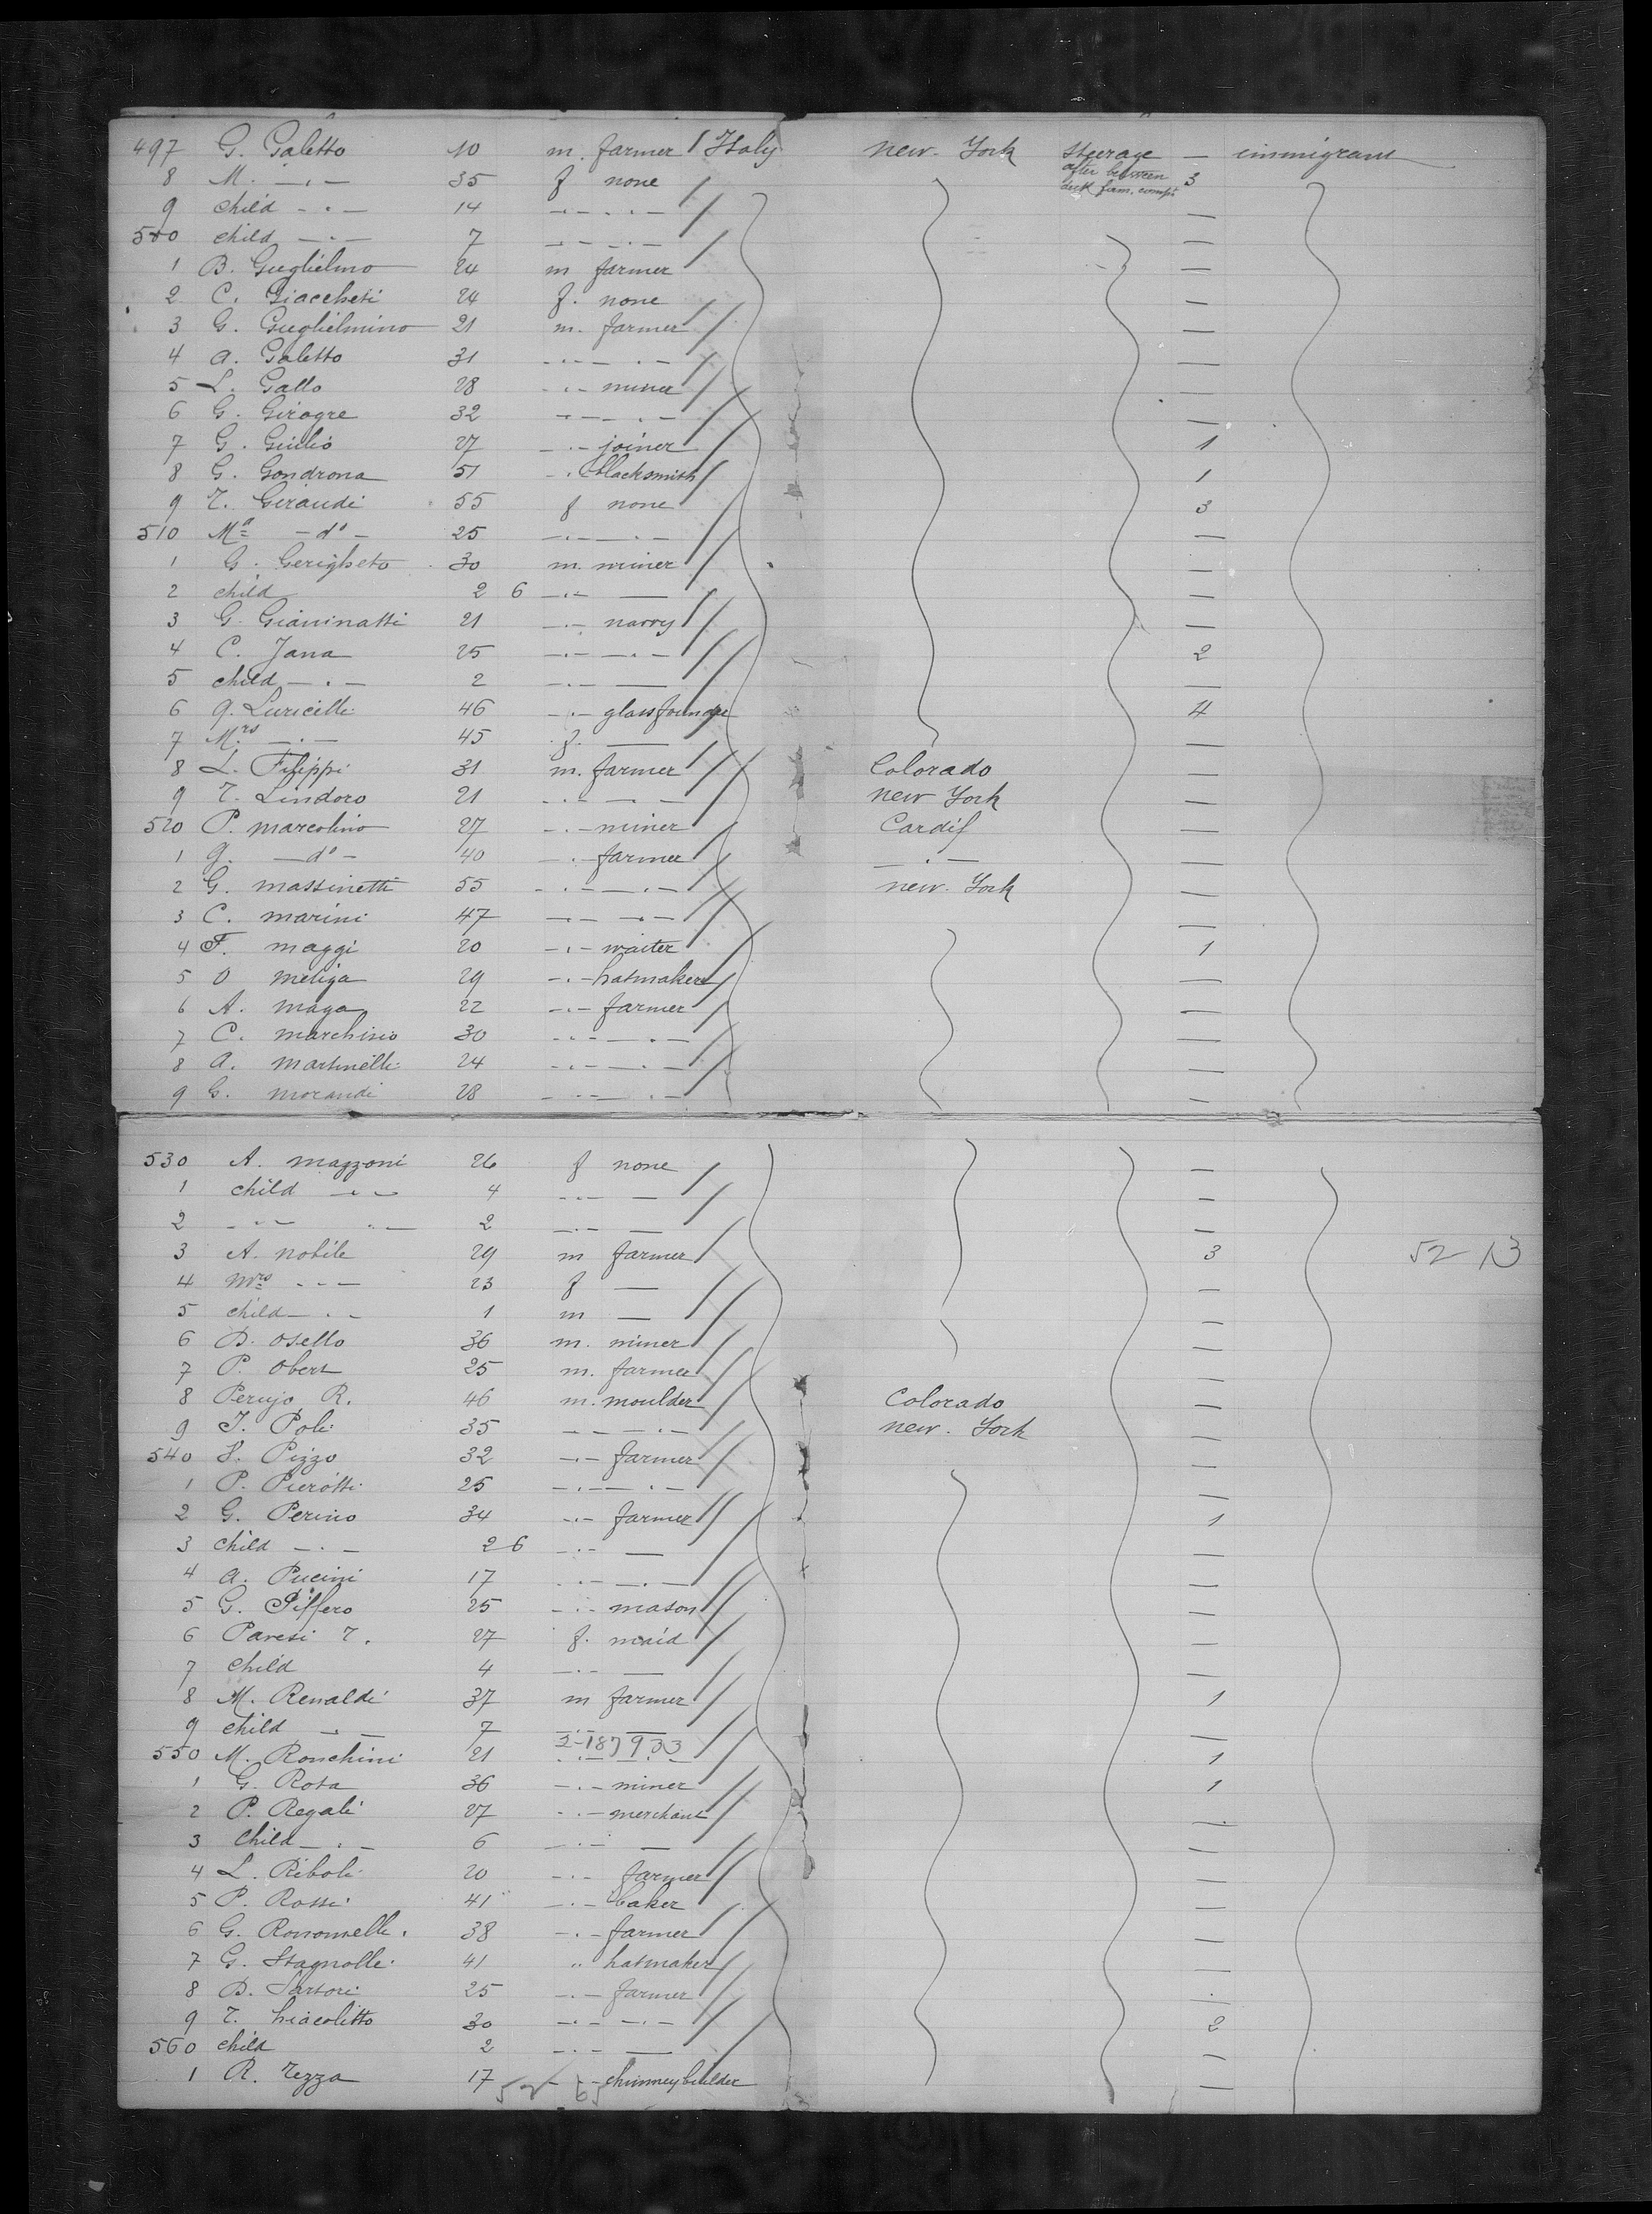 497 G. Galetto 40 m. farmer Italy New York Steerage — immigrant
8 M. —.— 35 f none after between deck fam. compt 3
9 child —.— 14 —.—.— —
500 child —.— 7 —.—.— —
1 B. Guglielmo 24 m farmer —
2 C. Giacchesi 24 f. none —
3 G. Guglielmino 21 m. farmer —
4 A. Galetto 31 —.— —.— —
5 L. Gallo 28 —.— miner —
6 G. Girogre 32 —.— —.— —
7 G. Giulio 27 —.— joiner 1
8 G. Gondrona 51 —.— blacksmith 1
9 T. Giraudi 55 f none 3
510 Ma —do— 25 —.— —.— —
1 G. Gerigheto 30 m. miner —
2 child 2 6 —.— — —
3 G. Gianinatti 21 —.— navvy —
4 C. Jana 25 —.— —.— 2
5 child —.— 2 —.— — —
6 G. Luricelli 46 —.— glassfounder 4
7 Mrs —.— 45 f. — —
8 L. Filippi 31 m. farmer Colorado —
9 T. Lindoro 21 —.— —.— New York —
520 P. Marcolino 27 —.— miner Cardif —
1 G. —do— 40 —.— farmer —.— —
2 G. Massinetti 55 —.— —.— New York —
3 C. Marini 47 —.— —.— —
4 F. Maggi 20 —.— waiter 1
5 O Meliga 29 —.— hatmaker —
6 A. Maga 22 —.— farmer —
7 C. Marchisio 30 —.— —.— —
8 A. Martinelli 24 —.— —.— —
9 G. Morandi 28 —.— —.— —
530 A. Mazzoni 26 f none —
1 child —.— 4 —.— — —
2 —.— —.— 2 —.— — —
3 A. Nobile 29 m farmer 3 52 13
4 Mrs —.— 23 f — —
5 child —.— 1 m — —
6 D. Osello 36 m. miner —
7 P. Obert 25 m. farmer —
8 Perujo R. 46 m. moulder Colorado —
9 J. Poli 35 —.— —.— New York —
540 S. Pizzo 32 —.— farmer —
1 P. Pierotti 25 —.— —.— —
2 G. Perino 34 —.— farmer 1
3 child —.— 2 6 —.— — —
4 A. Pucini 17 —.— —.— —
5 G. Piffero 25 —.— mason —
6 Paresi T. 27 f. maid —
7 child 4 —.— — —
8 M. Renaldi 37 m farmer 1
9 child —.— 7 —.— — —
2-187933
550 M. Ronchini 21 —.— —.— 1
1 G. Rota 36 —.— miner 1
2 P. Regali 27 —.— merchant —
3 child —.— 6 —.— — —
4 L. Riboli 20 —.— farmer —
5 P. Rossi 41 —.— baker —
6 G. 38 —.— farmer —
7 G. Stagnolli 41 " hatmaker —
8 D. Sartori 25 —.— farmer —
9 T. 30 —.— —.— 2
560 child 2 —.— — —
1 R. Tezza 17 —.— chimneybuilder —